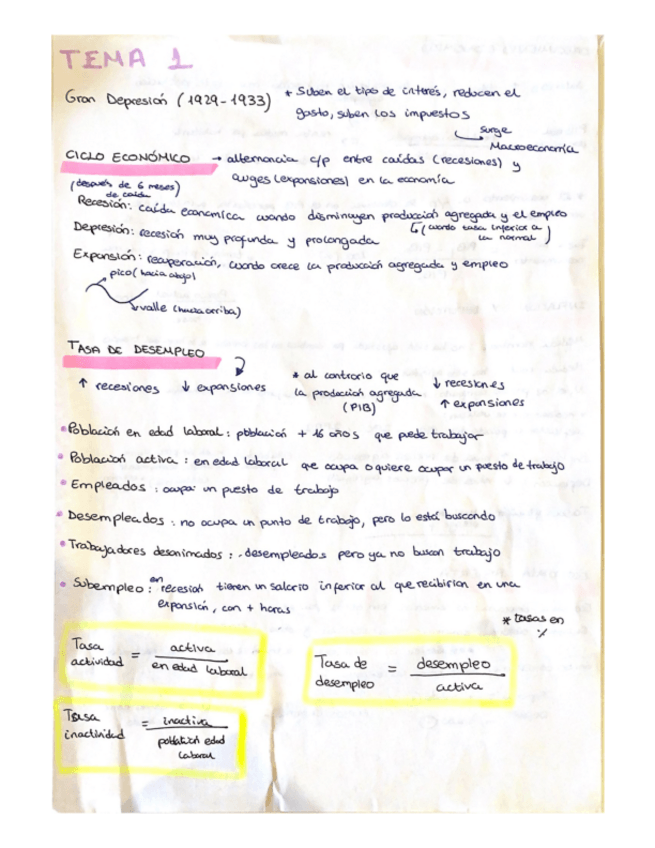 TEMA 1
Gran Depresión (1929-1933) * Suben el tipo de interés, reducen el
gasto, suben los impuestos
surge
Macroeconomía
CICLO ECONÓMICO → alternancia c/p entre caídas (recesiones) y
auges (expansiones) en la economía
(después de 6 meses
de caída)
Recesión: caída económica cuando disminuyen producción agregada y el empleo
(cuando tasa inferior a
la normal)
Depresión: recesión muy profunda y prolongada
Expansión: recuperación, cuando crece la producción agregada y empleo
pico (hacia abajo)
valle (hacia arriba)
TASA DE DESEMPLEO
↑ recesiones ↓ expansiones
* al contrario que
la producción agregada
(PIB)
↓ recesiones
↑ expansiones
• Población en edad laboral: población + 16 años que puede trabajar
• Población activa: en edad laboral que ocupa o quiere ocupar un puesto de trabajo
• Empleados: ocupa un puesto de trabajo
• Desempleados: no ocupa un punto de trabajo, pero lo está buscando
• Trabajadores desanimados: desempleados pero ya no buscan trabajo
• Subempleo: en recesión tienen un salario inferior al que recibirían en una
expansión, con + horas
* tasas en
%
Tasa actividad = activa / en edad laboral
Tasa de desempleo = desempleo / activa
Tasa inactividad = inactiva / población edad laboral